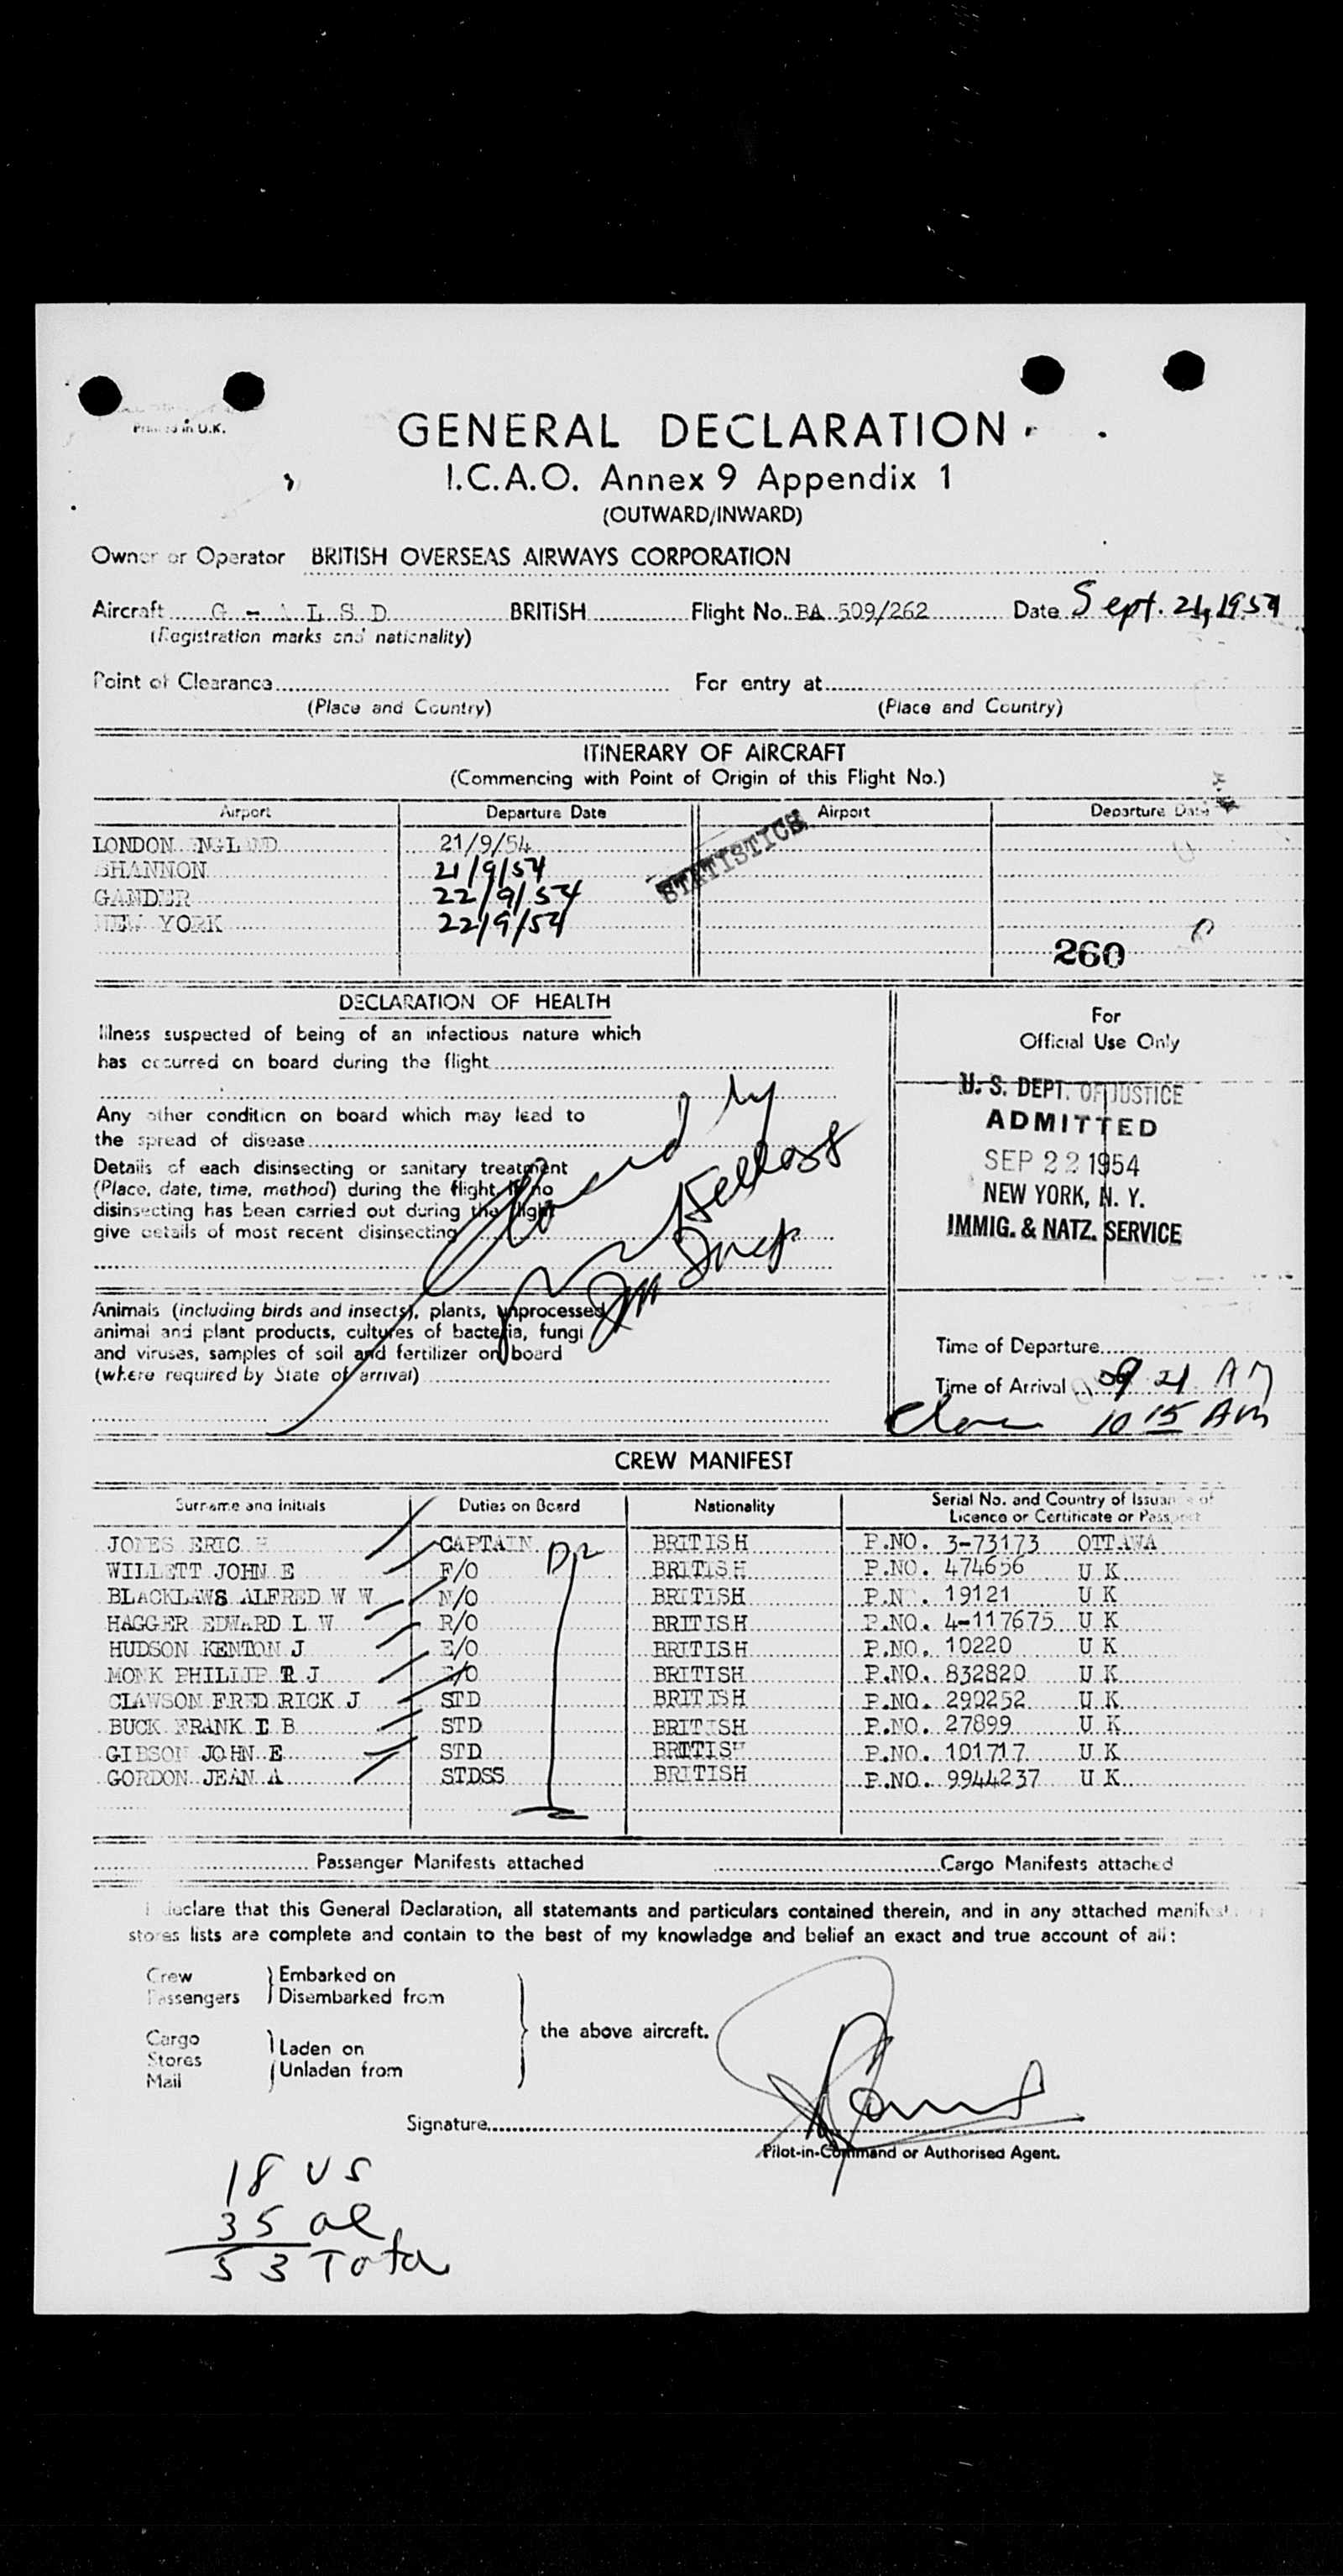 Printed in U.K.
GENERAL DECLARATION
I.C.A.O. Annex 9 Appendix 1
(OUTWARD/INWARD)
Owner or Operator BRITISH OVERSEAS AIRWAYS CORPORATION
Aircraft G - A L S D BRITISH Flight No. BA 509/262 Date Sept. 21, 1954
(Registration marks and nationality)
Point of Clearance For entry at
(Place and Country) (Place and Country)
ITINERARY OF AIRCRAFT
(Commencing with Point of Origin of this Flight No.)
Airport Departure Date Airport Departure Date
STATISTICS
LONDON ENGLAND 21/9/54
SHANNON 21/9/54
GANDER 22/9/54
NEW YORK 22/9/54
260
DECLARATION OF HEALTH
Illness suspected of being of an infectious nature which
has occurred on board during the flight
Any other condition on board which may lead to
the spread of disease
Details of each disinsecting or sanitary treatment
(Place, date, time, method) during the flight. If no
disinsecting has been carried out during the flight
give details of most recent disinsecting
by
Insp
Animals (including birds and insects), plants, unprocessed
animal and plant products, cultures of bacteria, fungi
and viruses, samples of soil and fertilizer on board
(where required by State of arrival)
For
Official Use Only
U. S. DEPT. OF JUSTICE
ADMITTED
SEP 22 1954
NEW YORK, N. Y.
IMMIG. & NATZ. SERVICE
Time of Departure
Time of Arrival 09 21 AM
10 15 AM
CREW MANIFEST
Surname and Initials Duties on Board Nationality Serial No. and Country of Issuance of
Licence or Certificate or Passport
JONES ERIC H CAPTAIN BRITISH P.NO. 3-73173 OTTAWA
WILLETT JOHN E F/O BRITISH P.NO. 474656 U K
BLACKLAWS ALFRED W W N/O BRITISH P.NO. 19121 U K
HAGGER EDWARD L W R/O BRITISH P.NO. 4-117675 U K
HUDSON KENTON J E/O BRITISH P.NO. 10220 U K
MONK PHILLIP R J E/O BRITISH P.NO. 832820 U K
CLAWSON FREDRICK J STD BRITISH P.NO. 290252 U K
BUCK FRANK E B STD BRITISH P.NO. 27899 U K
GIBSON JOHN E STD BRITISH P.NO. 101717 U K
GORDON JEAN A STDSS BRITISH P.NO. 9944237 U K
Passenger Manifests attached Cargo Manifests attached
I declare that this General Declaration, all statements and particulars contained therein, and in any attached manifest
stores lists are complete and contain to the best of my knowledge and belief an exact and true account of all:
Crew
Passengers
Embarked on
Disembarked from
Cargo
Stores
Mail
Laden on
Unladen from
the above aircraft.
Signature
Pilot-in-Command or Authorised Agent.
18 US
35 al
53 Total